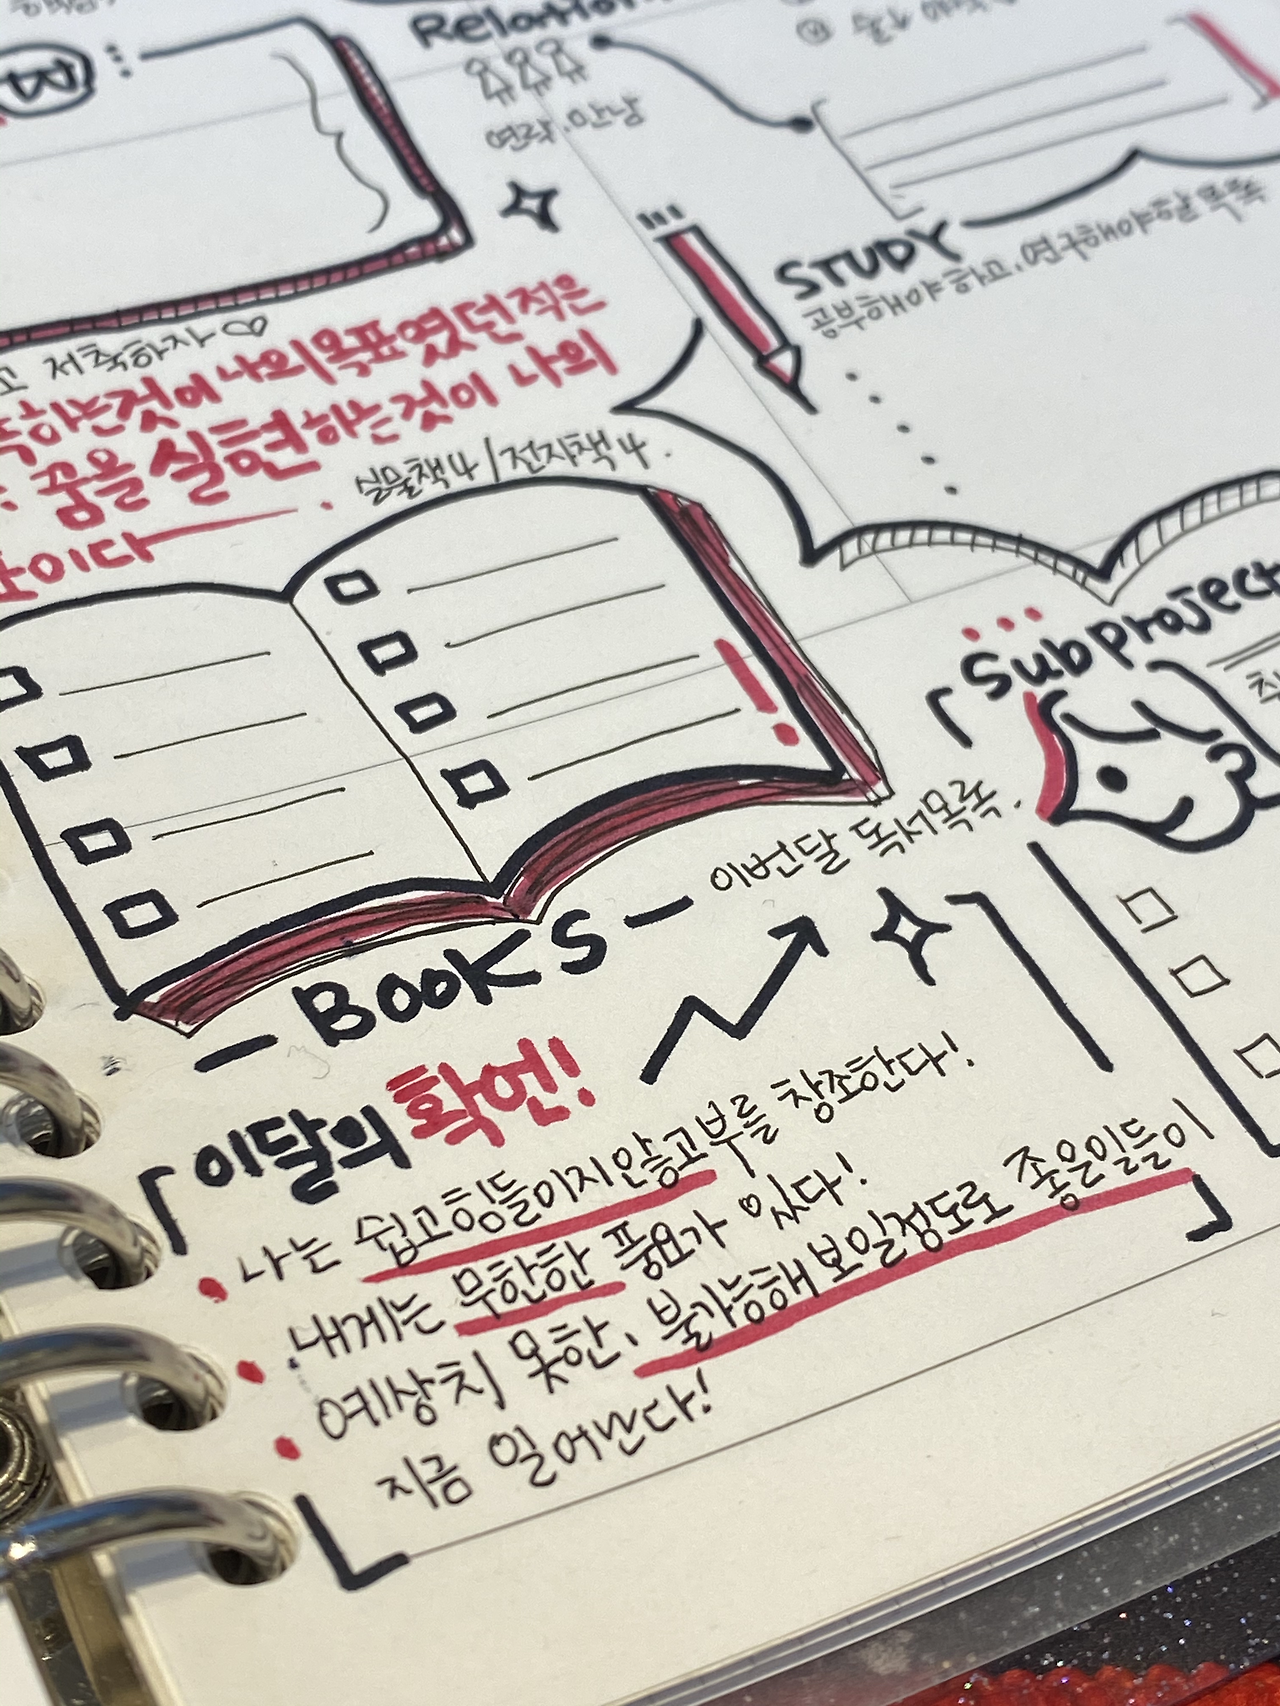 Relation
연락.만남
STUDY
공부해야하고.연구해야할목록
고 저축하자♡
하는것이 나의목표였던적은
꿈을 실현하는것이 나의
이다
실물책4/전자책4.
Subproject
이번달 독서목록.
- BOOKS -
「이달의 확언!
• 나는 쉽고힘들이지않고부를 창조한다!
• 내게는 무한한 풍요가 있다!
• 예상치 못한, 불가능해보일정도로 좋은일들이
지금 일어난다!